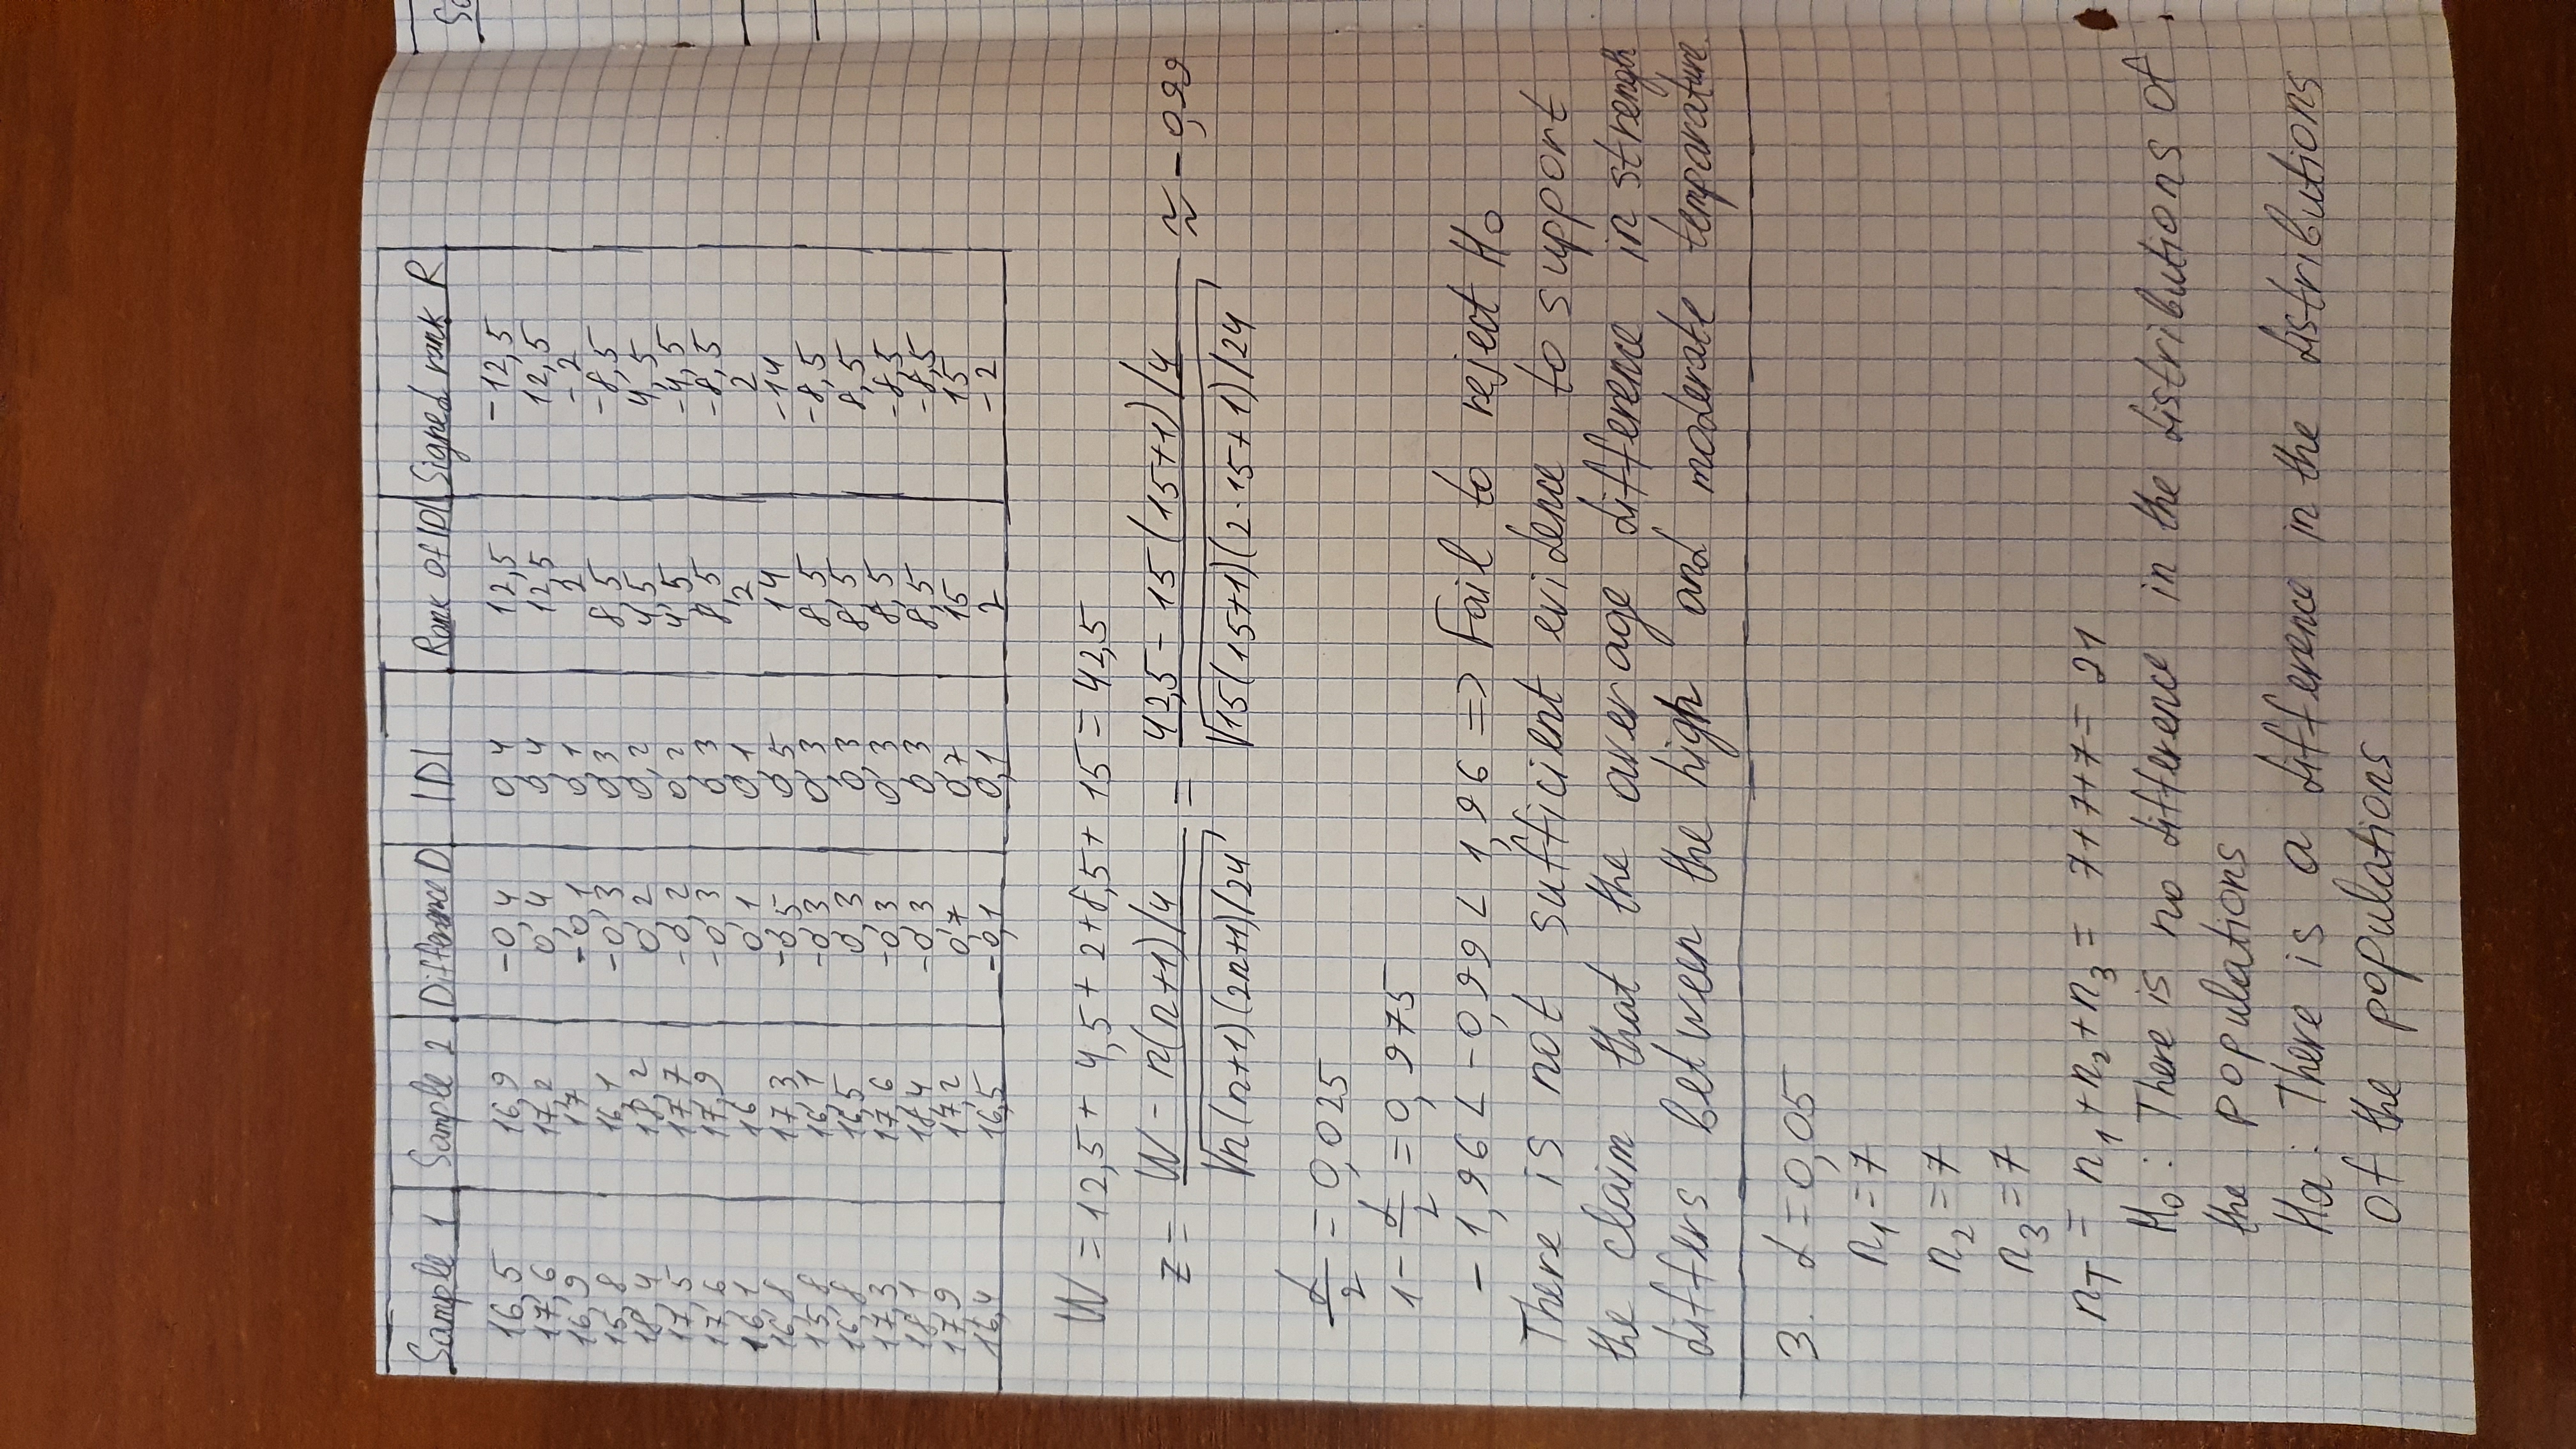 Sample 1 Sample 2 Difference D |D| Rank of |D| Signed rank R
16,5 16,9 -0,4 0,4 12,5 -12,5
17,6 17,2 0,4 0,4 12,5 12,5
16,9 17 -0,1 0,1 2 -2
15,8 16,1 -0,3 0,3 8,5 -8,5
18,4 18,2 0,2 0,2 4,5 4,5
17,5 17,7 -0,2 0,2 4,5 -4,5
17,6 17,9 -0,3 0,3 8,5 -8,5
16,1 16 0,1 0,1 2 2
16,8 17,3 -0,5 0,5 14 -14
15,8 16,1 -0,3 0,3 8,5 -8,5
16,8 16,5 0,3 0,3 8,5 8,5
17,3 17,6 -0,3 0,3 8,5 -8,5
18,1 18,4 -0,3 0,3 8,5 -8,5
17,9 17,2 0,7 0,7 15 15
16,4 16,5 -0,1 0,1 2 -2
W = 12,5 + 4,5 + 2 + 8,5 + 15 = 42,5
z = (W - n(n+1)/4) / √(n(n+1)(2n+1)/24) = (42,5 - 15(15+1)/4) / √(15(15+1)(2·15+1)/24) ≈ -0,99
α/2 = 0,025
1 - α/2 = 0,975
-1,96 < -0,99 < 1,96 => Fail to reject H₀
There is not sufficient evidence to support
the claim that the average difference in strength
differs between the high and moderate temparature.
3. α = 0,05
n₁ = 7
n₂ = 7
n₃ = 7
n_T = n₁ + n₂ + n₃ = 7+7+7 = 21
H₀: There is no difference in the distributions of
the populations
Ha: There is a difference in the distributions
of the populations